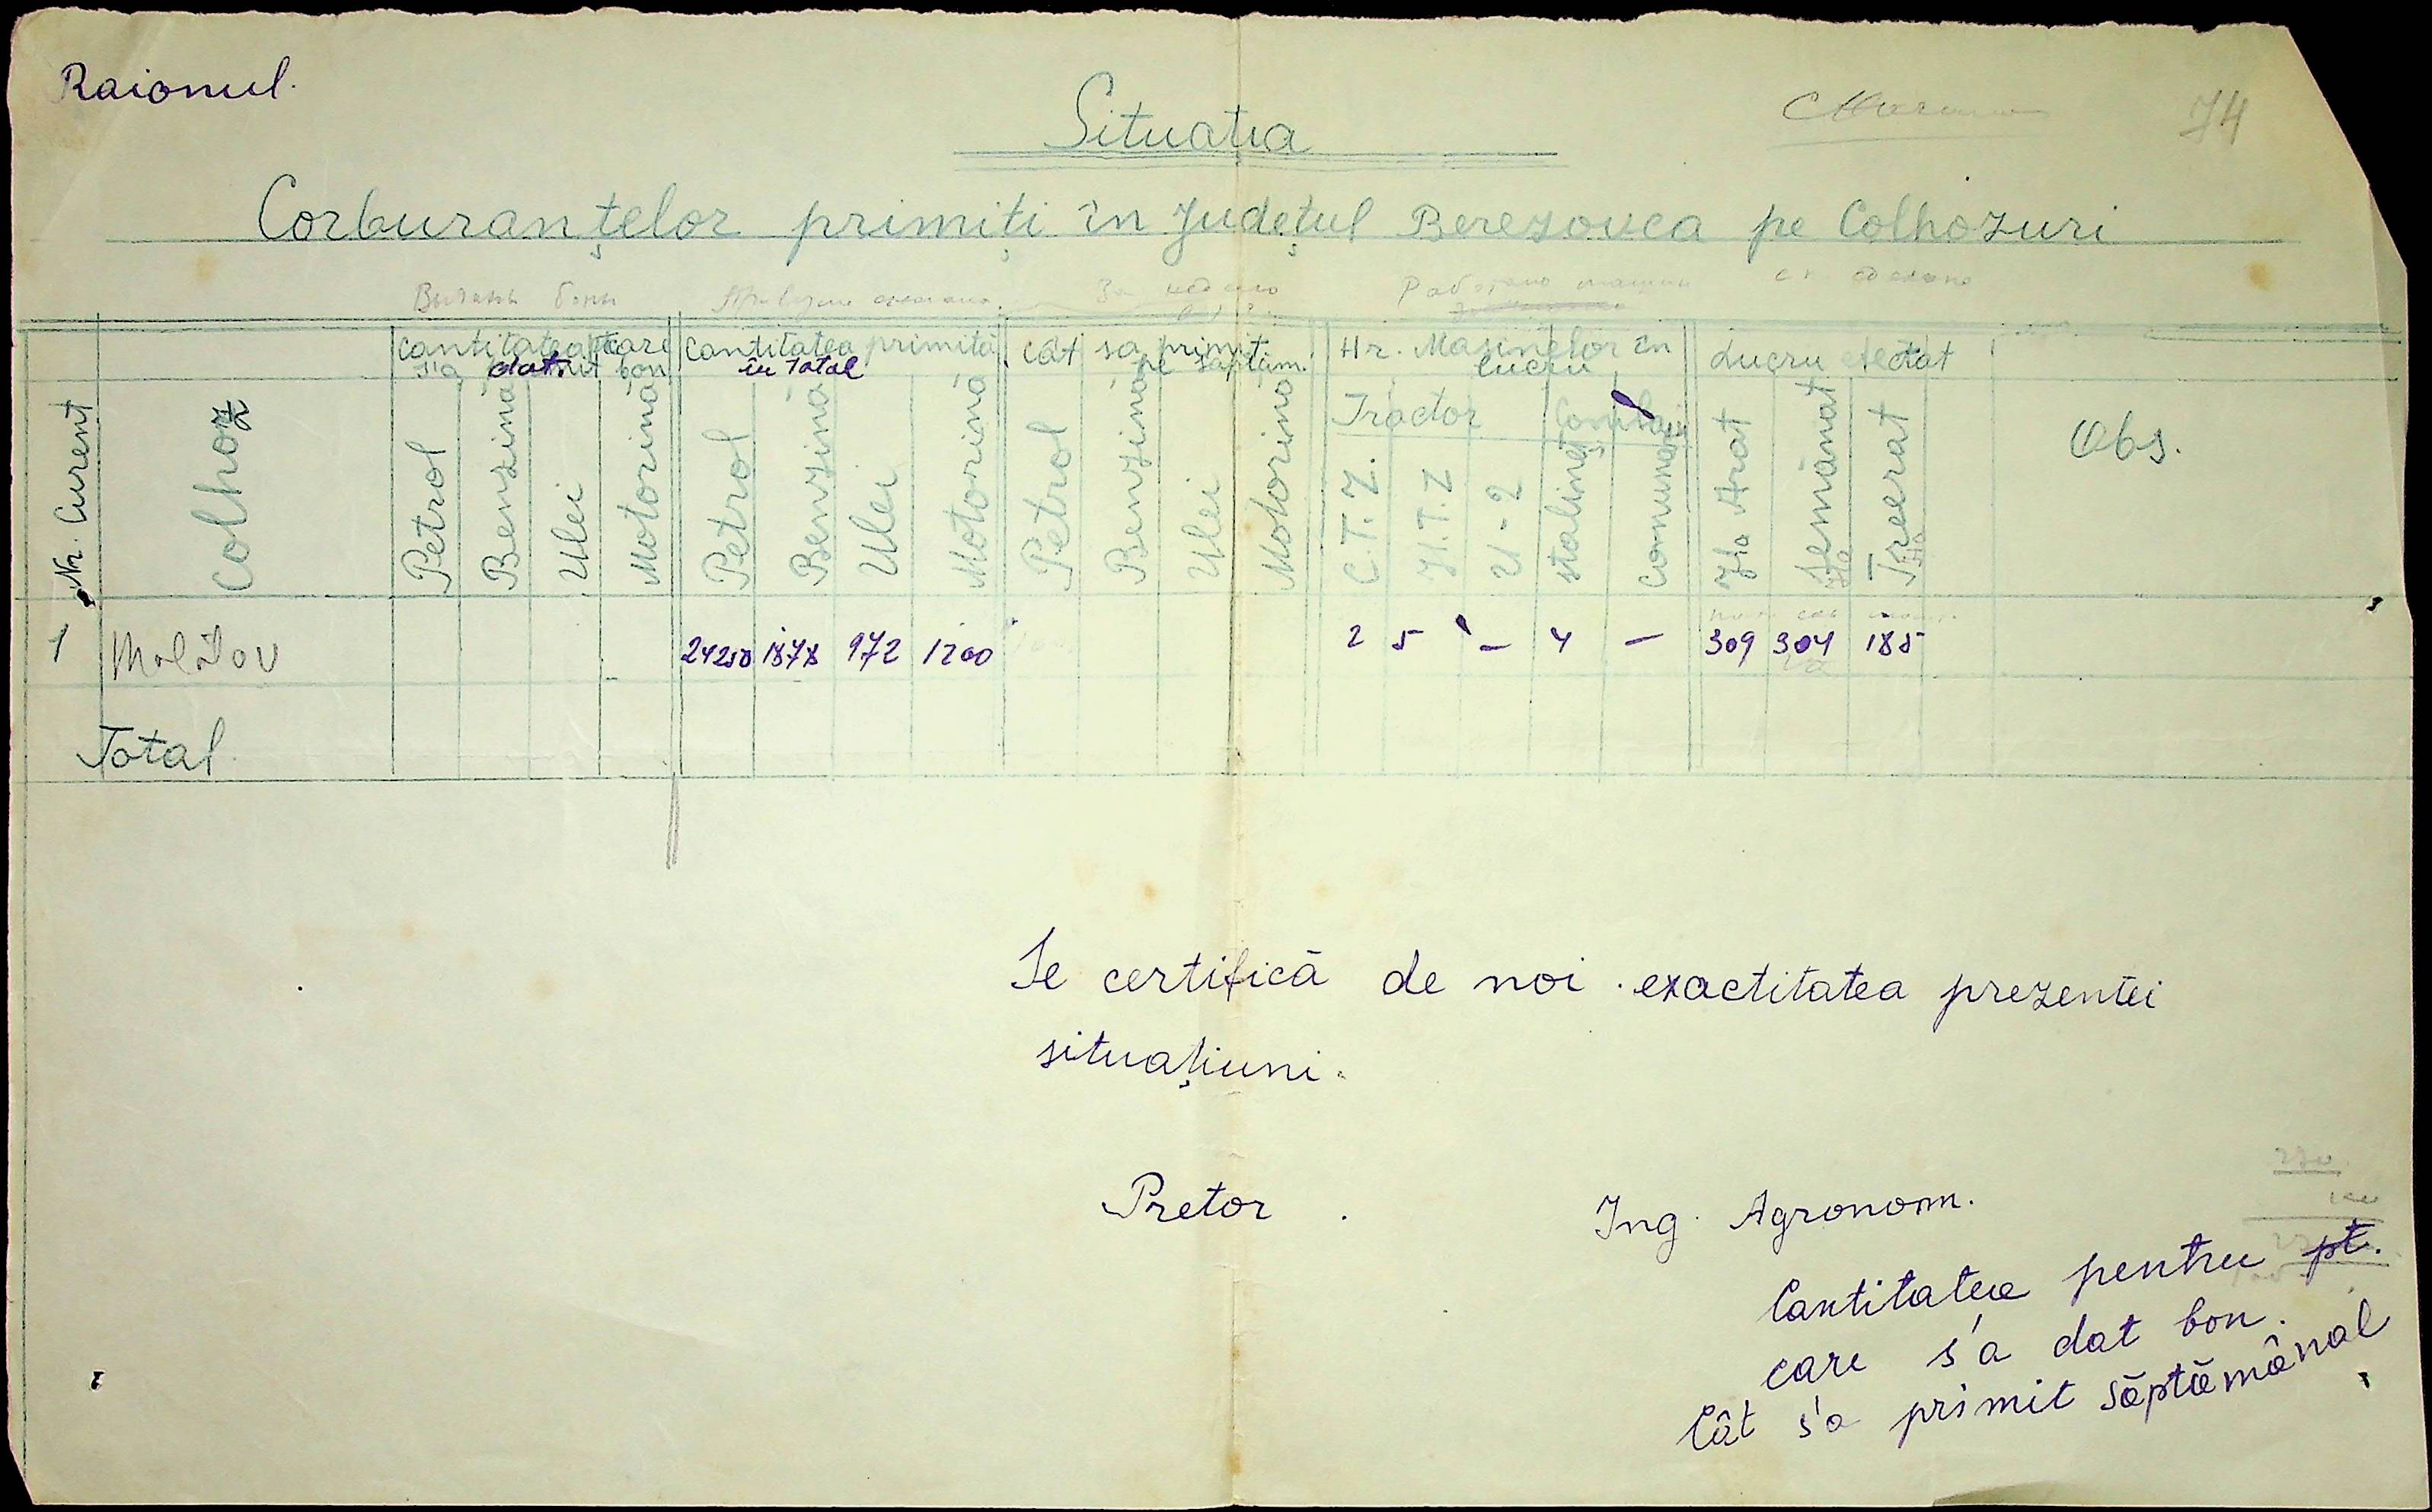 Raionul.
74
Situația
Corburanțelor primiți în Județul Berezovca pe Colhozuri
боны
За неделю
Работано машин
Nr. Curent
Colhoz
Cantitatea care s'a dat bon
Cantitatea primită în total
Cât sa primit pe săptăm.
Nr. Masinelor în lucru
Lucru efectat
Obs.
Tractor
Combain
Petrol Benzină Ulei Motorină
Petrol Benzină Ulei Motorină
Petrol Benzină Ulei Motorină
C.T.Z. H.T.Z U-2 stalineț comunar
Ha Arat Semănat Ha Treerat Ha
1 Molotov 24250 1878 972 1200 2 5 - 4 - 309 304 185
Total
Se certifică de noi exactitatea prezentei
situațiuni.
Pretor
Ing. Agronom.
Cantitatea pentru pt.
care s'a dat bon.
Cât s'a primit săptămânal